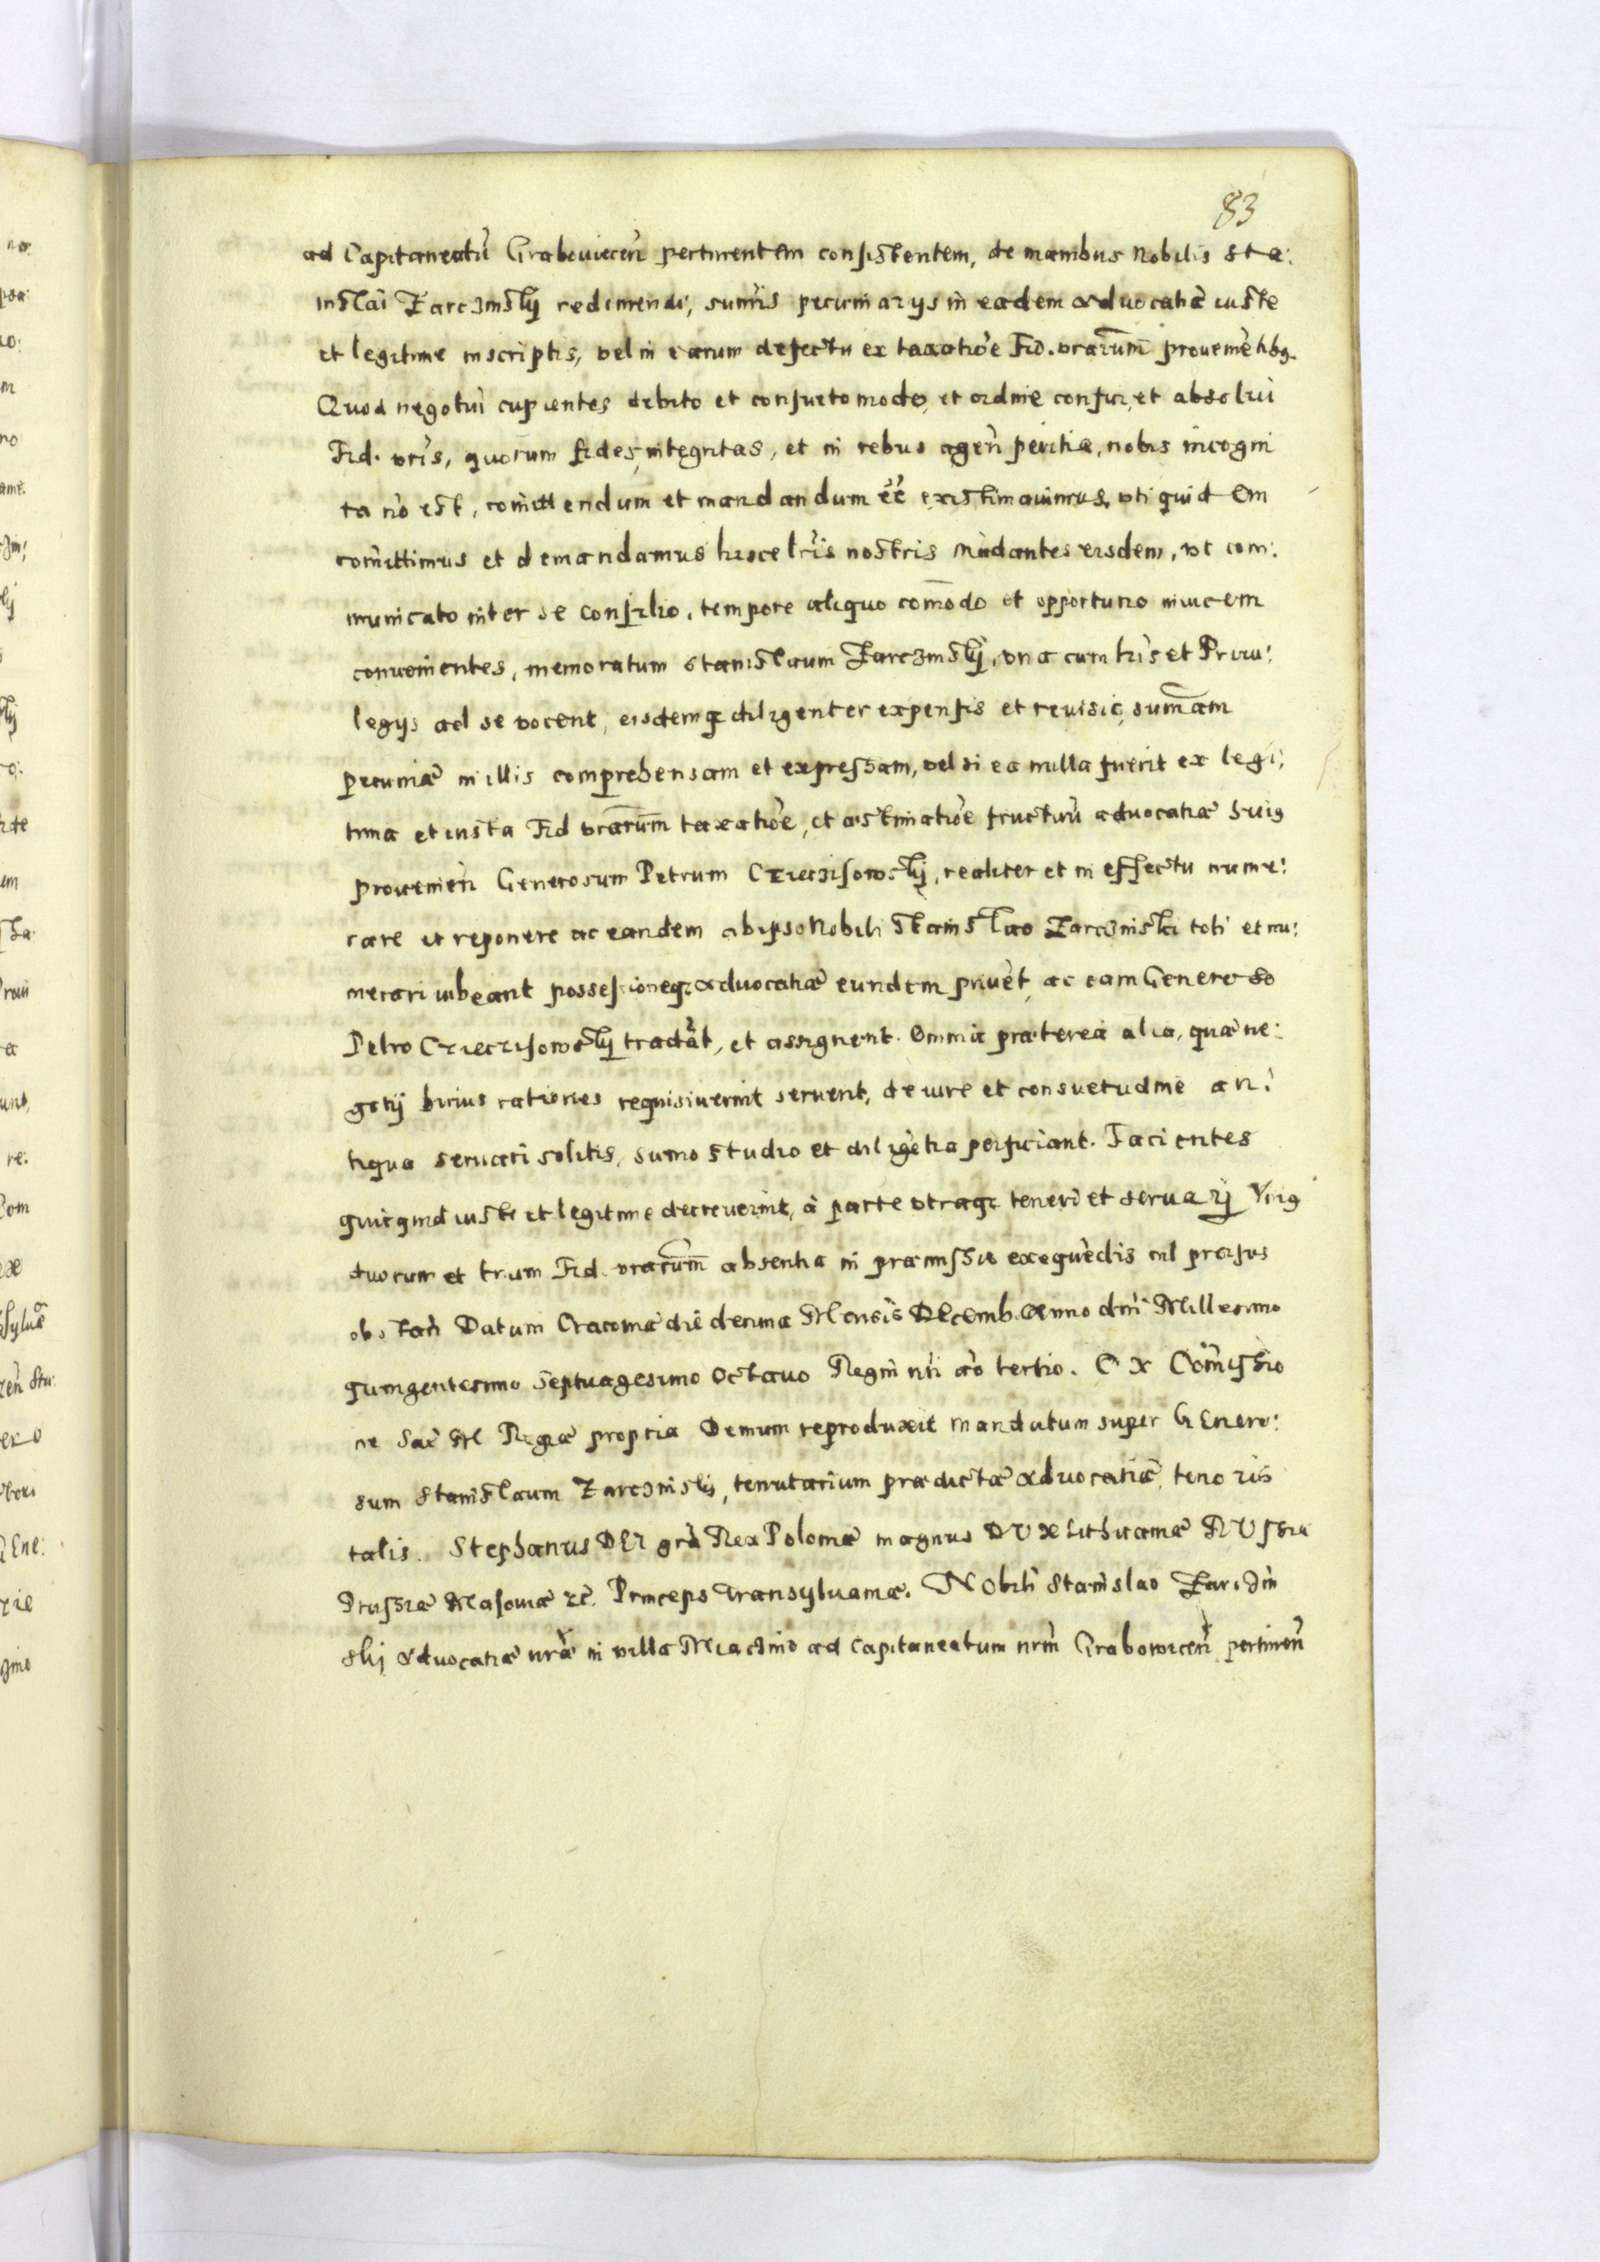 83
ad Capitaneatū Graboviecēn pertinentem consistentem, de manibus Nobilis Sta:
inslai Zarczinskij redimendi, summīs pecuniarijs in eadem advocatia iuste
et legitime inscriptis, vel in earum defectu ex taxatiōe Fid. vrarum̄ proveniētibq.
Quod negotiū cupientes debito et consueto modo, et ordine confici, et absolvi
Fid. vrīs, quorum fides, integritas, et in rebus agēn peritia, nobis incogni
ta nō est, comittendum et mandandum eē existimavimus, vti quidem
comittimus et demandamus hisce lrīs nostris Mādantes eisdem, vt com:
municato inter se consilio, tempore aliquo comodo et opportuno invicem
convenientes, memoratum Stanislaum Zarczinskij, vna cum lrīs et Privi:
legijs ad se vocent, eisdemq diligenter expensis et revisis, summam
pecuniæ in illis comprehensam et expressam, vel si ea nulla fuerit ex legi:
tima et iusta Fid vrarum̄ taxatiōe, et æstimatiōe fructuū advocatiæ huiq
provenien̄ Generosum Petrum Czieczisowskij, realiter et in effectu nume:
rare et reponere ac eandem ab ipso Nobili Stanislao Zarczinski tolli et nu:
merari iubeant possessioneq advocatiæ eundem privēt, ac eam Generoso
Petro Czieczisowskij tradāt, et assignent. Omnia præterea alia, quæ ne:
gotij huius rationes requisiverint servent, de iure et consuetudine an:
tiqua servari solitis, sumo studio et diligētia perficiant. Facientes
quicquid iuste et legitime decreverint, à parte vtraq teneri et servarj Vniq
duorum et trium Fid. vrarum̄ absentia in præmissis exequēdis nil prorsus
obstan̄ Datum Cracoviæ die decima Mensis Decemb. Anno dnī Millesimo
quingentesimo Septuagesimo Octavo Regni nrī aō tertio. Ex Comissio
ne Sac M Regiæ propria Demum reproduxit mandatum super Genero:
sum Stanislaum Zarczinskij, tenutarium prædictæ advocatiæ, tenoris
talis. Stephanus DEI grà Rex Poloniæ magnus DUX Lithuaniæ RUssiæ
Prussiæ Masoviæ zc. Princeps Transylvaniæ. Nobili Stanislao Zarczin
skj advocatiæ nræ in villa Miaczino ad Capitaneatum nrm̄ Grabowiecēn pertinen̄